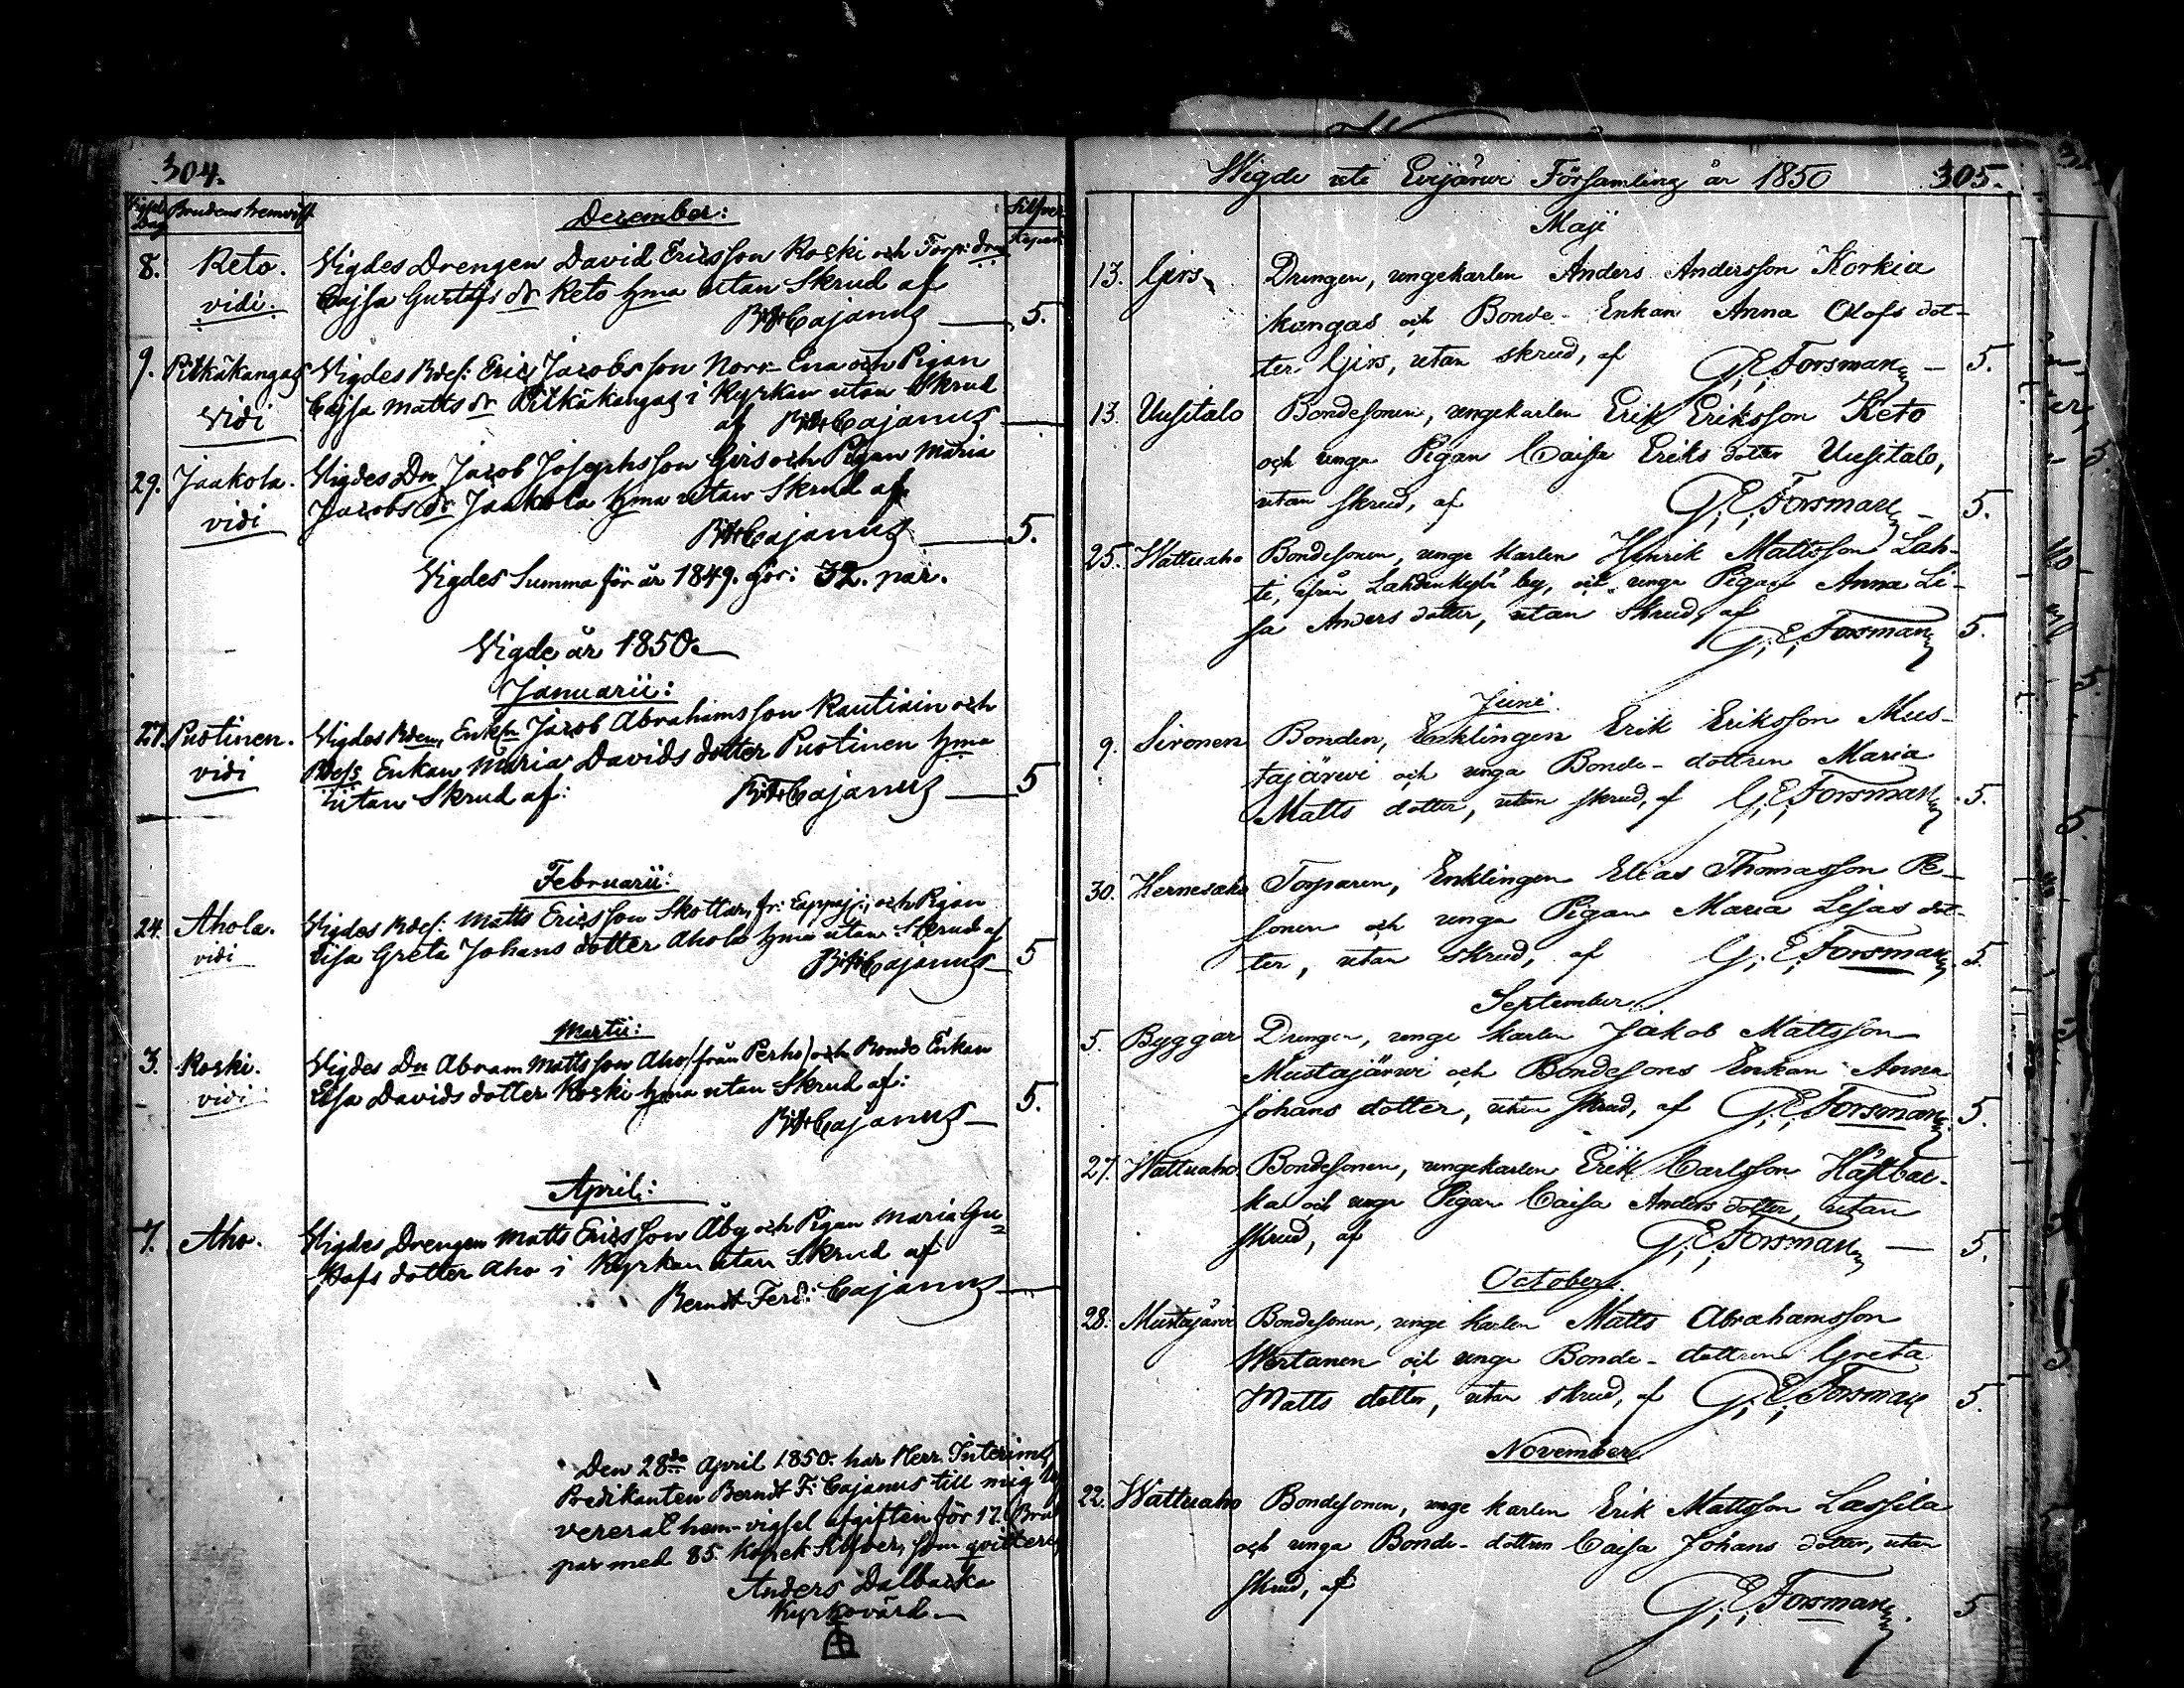 304.
Vigsel Dag
Brudens hemvist
December:
Silfver
Kopek
8. Keto. Vigdes Drengen David Ericsson Koski och Torp: drn
vidi. Cajsa Gustafs dr Keto hma utan Skrud af
B:F:Cajanus 5.
9. Pitkäkangas Vigdes Bdes: Eric Jacobsson Norr-Ena och Pigan
Vidi Cajsa Matts dr Pitkäkangas i Kyrkan utan Skrud
af B:F:Cajanus —
29. Jaakola. Vigdes Dn Jacob Josephsson Girs och Pigan Maria
vidi Jacobs dr Jaakola hma utan Skrud af
B:F:Cajanus 5.
Vigdes Summa för år 1849. gör: 32. par.
Vigde år 1850.
Januarii:
27. Puotinen. Vigdes Bden, Enkln Jacob Abrahamsson Rautiain och
vidi Bdes Enkan Maria Davids dotter Puotinen hma
utan Skrud af: B:F:Cajanus 5
Februarii:
24. Ahola. Vigdes Bdes: Matts Ericsson Skottar, fr: Lappajr:, och Pigan
vidi Lisa Greta Johans dotter Ahola hma utan Skrud af
B:F:Cajanus 5
Martii:
3. Koski. Vigdes Dn Abram Mattsson Aho (från Perho) och Bonde Enkan
vidi Lisa Davids dotter Koski hma utan Skrud af:
B:F:Cajanus 5.
April:
7. Aho. Vigdes Drengen Matts Ericsson Åbg och Pigan Maria Gu=
stafs dotter Aho i Kyrkan utan Skrud af
Berndt Ferd: Cajanus —
Den 28de April 1850. har Herr Interims
Predikanten Berndt F: Cajanus till mig
vererat hem-vigsel afgiften för 17. Brud
par med 85. Kopek Silfver, som qvitteras
Anders Dalbacka
Kyrkovärd.
Wigde uti Evijärwi Församling år 1850 305.
Maji
13. Girs, Drengen, ungekarlen Anders Andersson Korkia
kangas och Bonde-Enkan Anna Olofs dot-
ter Girs, utan skrud, af G; E; Forsman — 5.
13. Uusitalo Bondesonen, ungekarlen Erik Eriksson Keto
och unga Pigan Caisa Eriks dotter Uusitalo,
utan skrud, af G; E; Forsman — 5.
25. Wattuaho Bondesonen, unge karlen Henrik Mattsson Lah-
ti, ifrån Lahdenkylä by, och unga Pigan Anna Li-
sa Anders dotter, utan skrud, af
G; E; Forsman 5.
Juni.
9. Sironen Bonden, Enklingen Erik Eriksson Mus-
tajärwi och unga Bonde-dottren Maria
Matts dotter, utan skrud, af G; E; Forsman 5.
30. Hernesaho Torparen, Enklingen Elias Thomasson Pe-
sonen och unga Pigan Maria Lisas dot-
ter, utan skrud, af G; E; Forsman 5.
September
5. Byggar Drengen, unge karlen Jakob Mattsson
Mustajärwi och Bondesons Enkan Anna
Johans dotter, utan skrud, af G; E; Forsman 5.
27. Wattuaho Bondesonen, ungekarlen Erik Carlsson Håstbac-
ka och unga Pigan Caisa Anders dotter, utan
skrud, af G; E; Forsman — 5.
October
28. Mustajärwi Bondesonen, unge karlen Matts Abrahamsson
Wirtanen och unga Bonde-dottren Greta
Matts dotter, utan skrud, af G; E; Forsman 5.
November
22. Wattuaho Bondesonen, unge karlen Erik Mattsson Lassila
och unga Bonde-dottren Caisa Johans dotter, utan
skrud, af
G; E; Forsman. 5